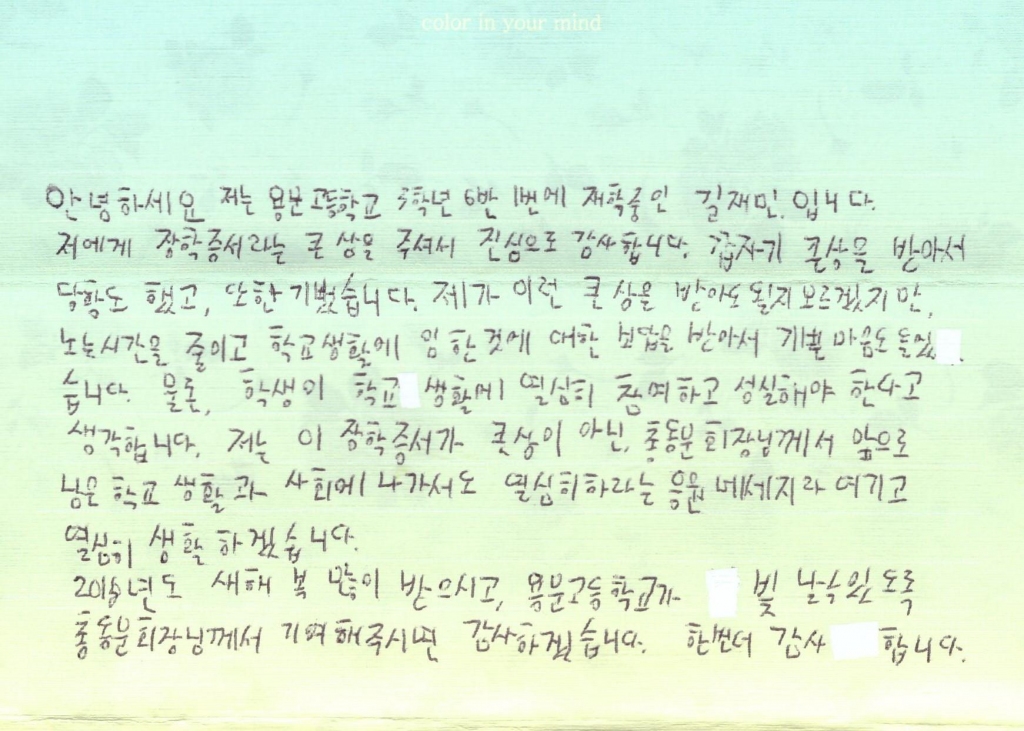 color in your mind
안녕하세요 저는 용문고등학교 3학년 6반 1번에 재학중인 길재민.입니다.
저에게 장학증서라는 큰 상을 주셔서 진심으로 감사합니다. 갑자기 큰상을 받아서
당황도 했고, 또한 기뻤습니다. 제가 이런 큰 상을 받아도 될지 모르겠지만,
노는시간을 줄이고 학교생활에 임한것에 대한 보답을 받아서 기쁠 마음도 들었
습니다. 물론, 학생이 학교 생활에 열심히 참여하고 성실해야 한다고
생각합니다. 저는 이 장학증서가 큰상이 아닌, 총동문회장님께서 앞으로
남은 학교 생활과 사회에 나가서도 열심히하라는 응원 메세지라 여기고
열심히 생활 하겠습니다.
2018년도 새해 복 많이 받으시고, 용문고등학교가 빛 날수있도록
총동문회장님께서 기여해주시면 감사하겠습니다. 한번더 감사 합니다.